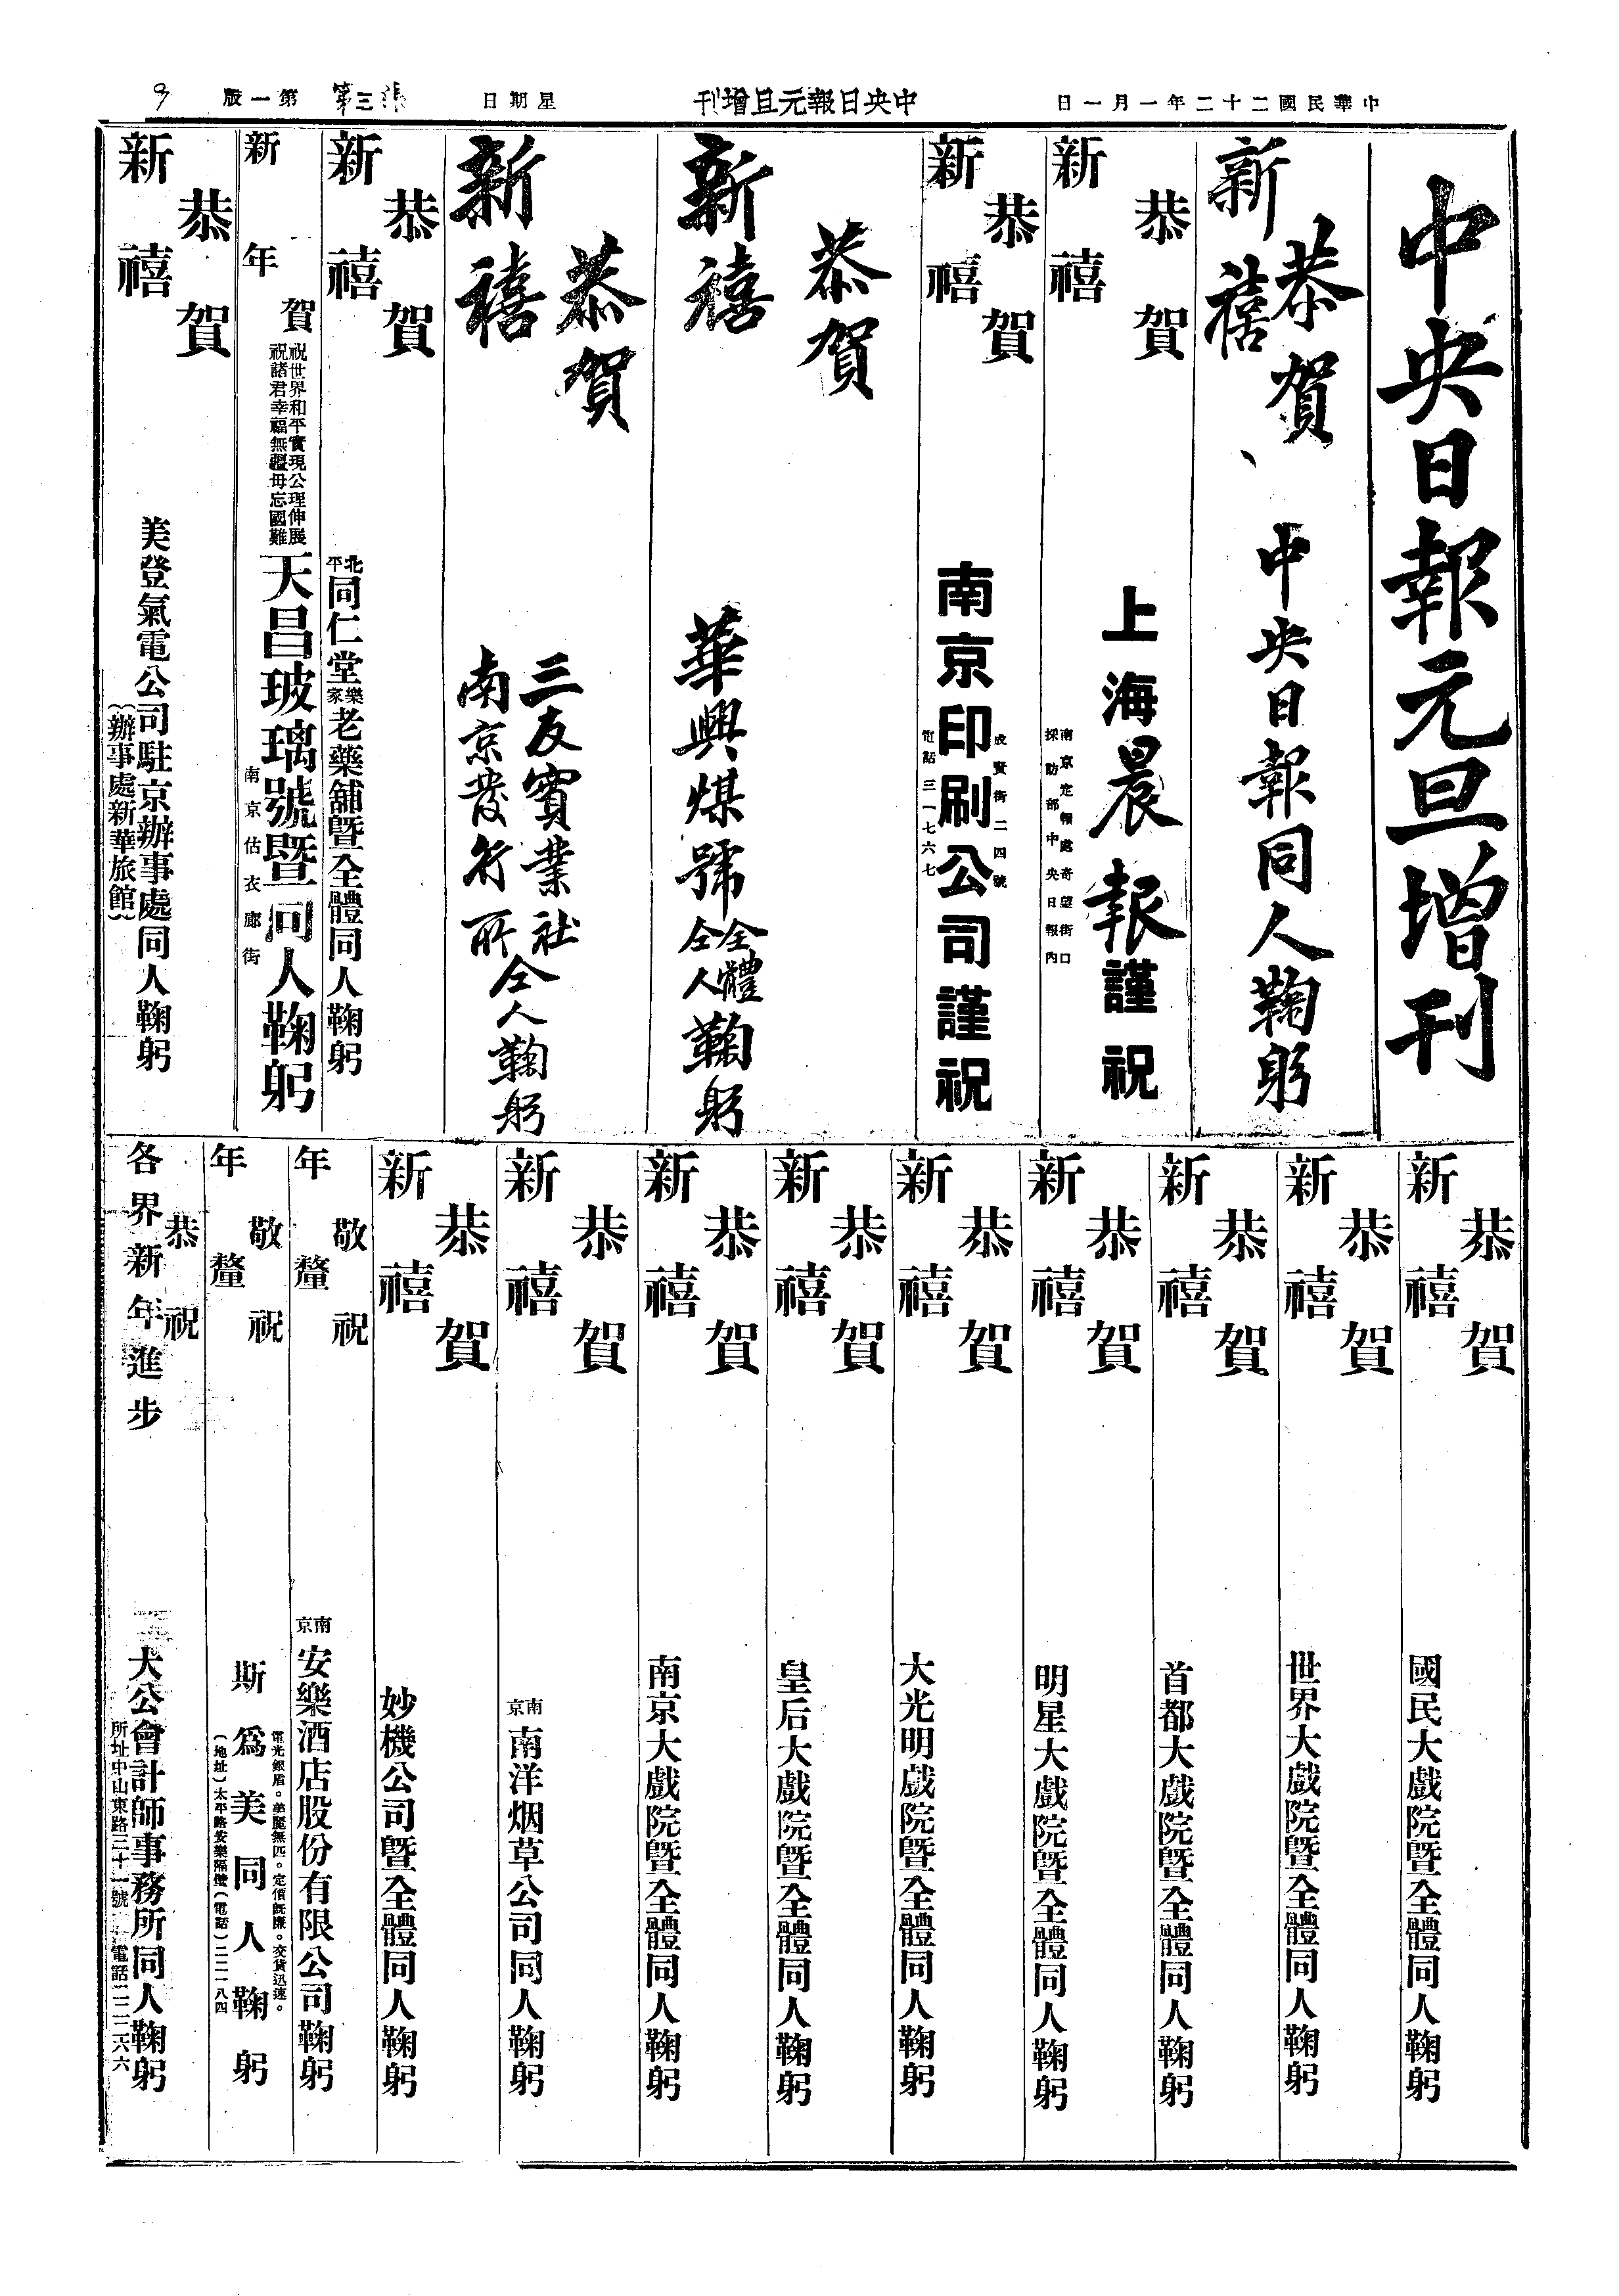 中華民國二十二年一月一日
中央日報元旦增刊
星期日
第三張
第一版
9
中央日報元旦增刊
恭賀
新禧
中央日報同人鞠躬
恭賀
新禧
上海晨報謹祝
南京定報處奇望街口
採訪部中央日報內
恭賀
新禧
成賢街二四號
南京印刷公司謹祝
電話三一七六七
恭賀
新禧
華興煤號全體仝人鞠躬
恭賀
新禧
三友實業社
南京發行所
仝人鞠躬
恭賀
新禧
北平同仁堂樂家老藥舖暨全體同人鞠躬
賀
新年
祝世界和平實現公理伸展
祝諸君幸福無疆毋忘國難
天昌玻璃號暨同人鞠躬
南京估衣廊街
恭賀
新禧
美登氣電公司駐京辦事處同人鞠躬
(辦事處新華旅館)
恭賀
新禧
國民大戲院暨全體同人鞠躬
恭賀
新禧
世界大戲院暨全體同人鞠躬
恭賀
新禧
首都大戲院暨全體同人鞠躬
恭賀
新禧
明星大戲院暨全體同人鞠躬
恭賀
新禧
大光明戲院暨全體同人鞠躬
恭賀
新禧
皇后大戲院暨全體同人鞠躬
恭賀
新禧
南京大戲院暨全體同人鞠躬
恭賀
新禧
南京南洋烟草公司同人鞠躬
恭賀
新禧
妙機公司暨全體同人鞠躬
敬祝
年釐
南京安樂酒店股份有限公司鞠躬
敬祝
年釐
電光銀盾。美麗無匹。定價旣廉。交貨迅速。
斯爲美同人鞠躬
(地址)太平路安樂隔壁(電話)二二一八四
恭祝
各界新年進步
大公會計師事務所同人鞠躬
所址中山東路三十一號 電話二二二六六